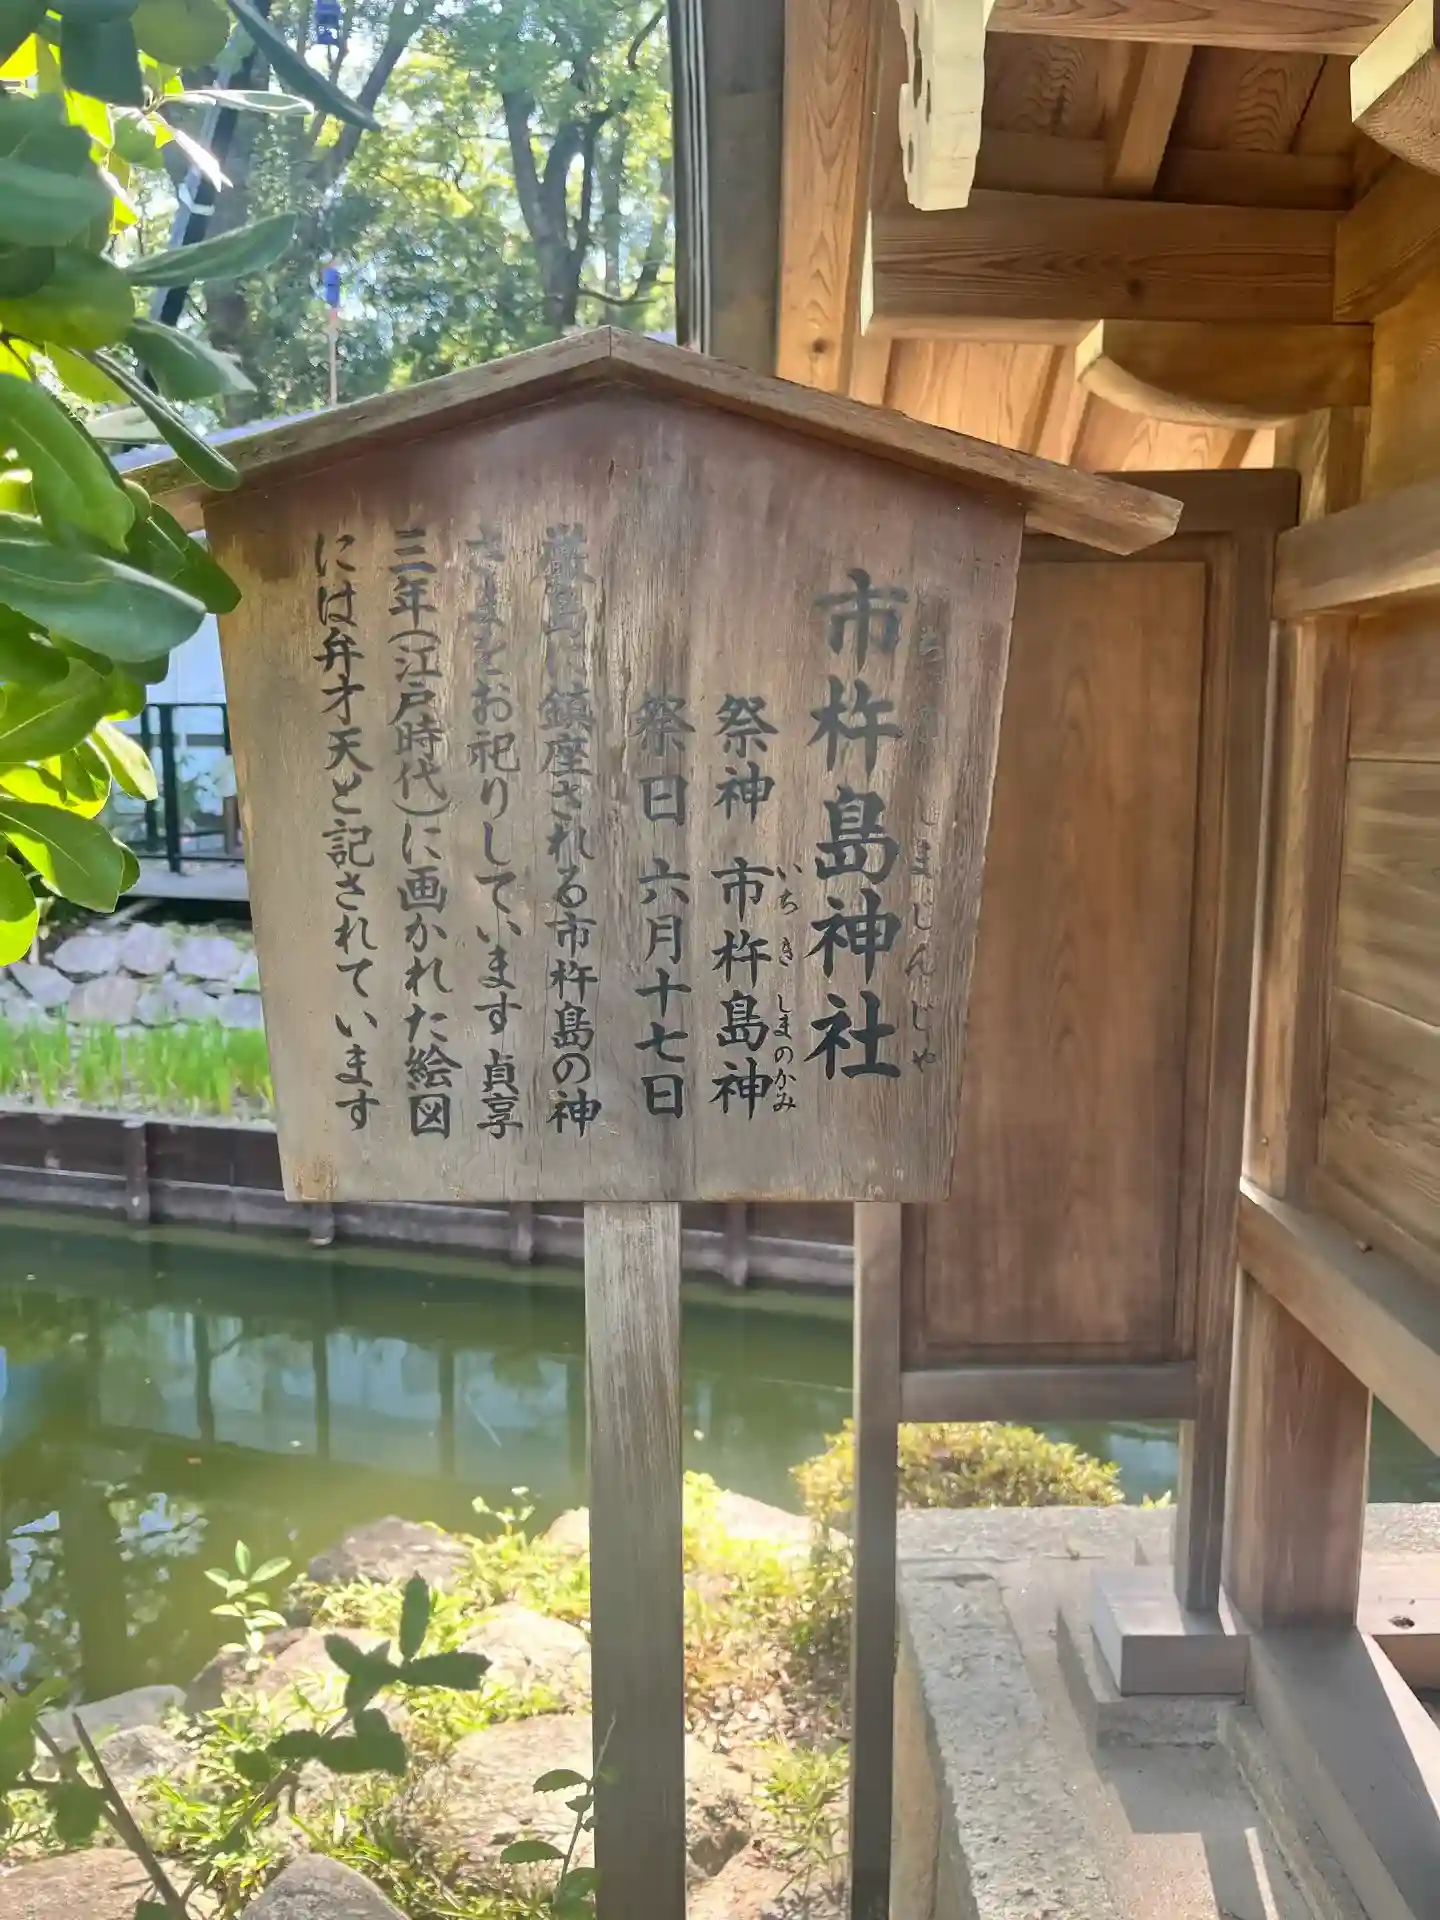 市杵島神社
いちきしまじんじゃ
祭神 市杵島神
いちきしまのかみ
祭日 六月十七日
厳島に鎮座される市杵島の神
さまをお祀りしています 貞享
三年(江戸時代)に画かれた絵図
には弁才天と記されています